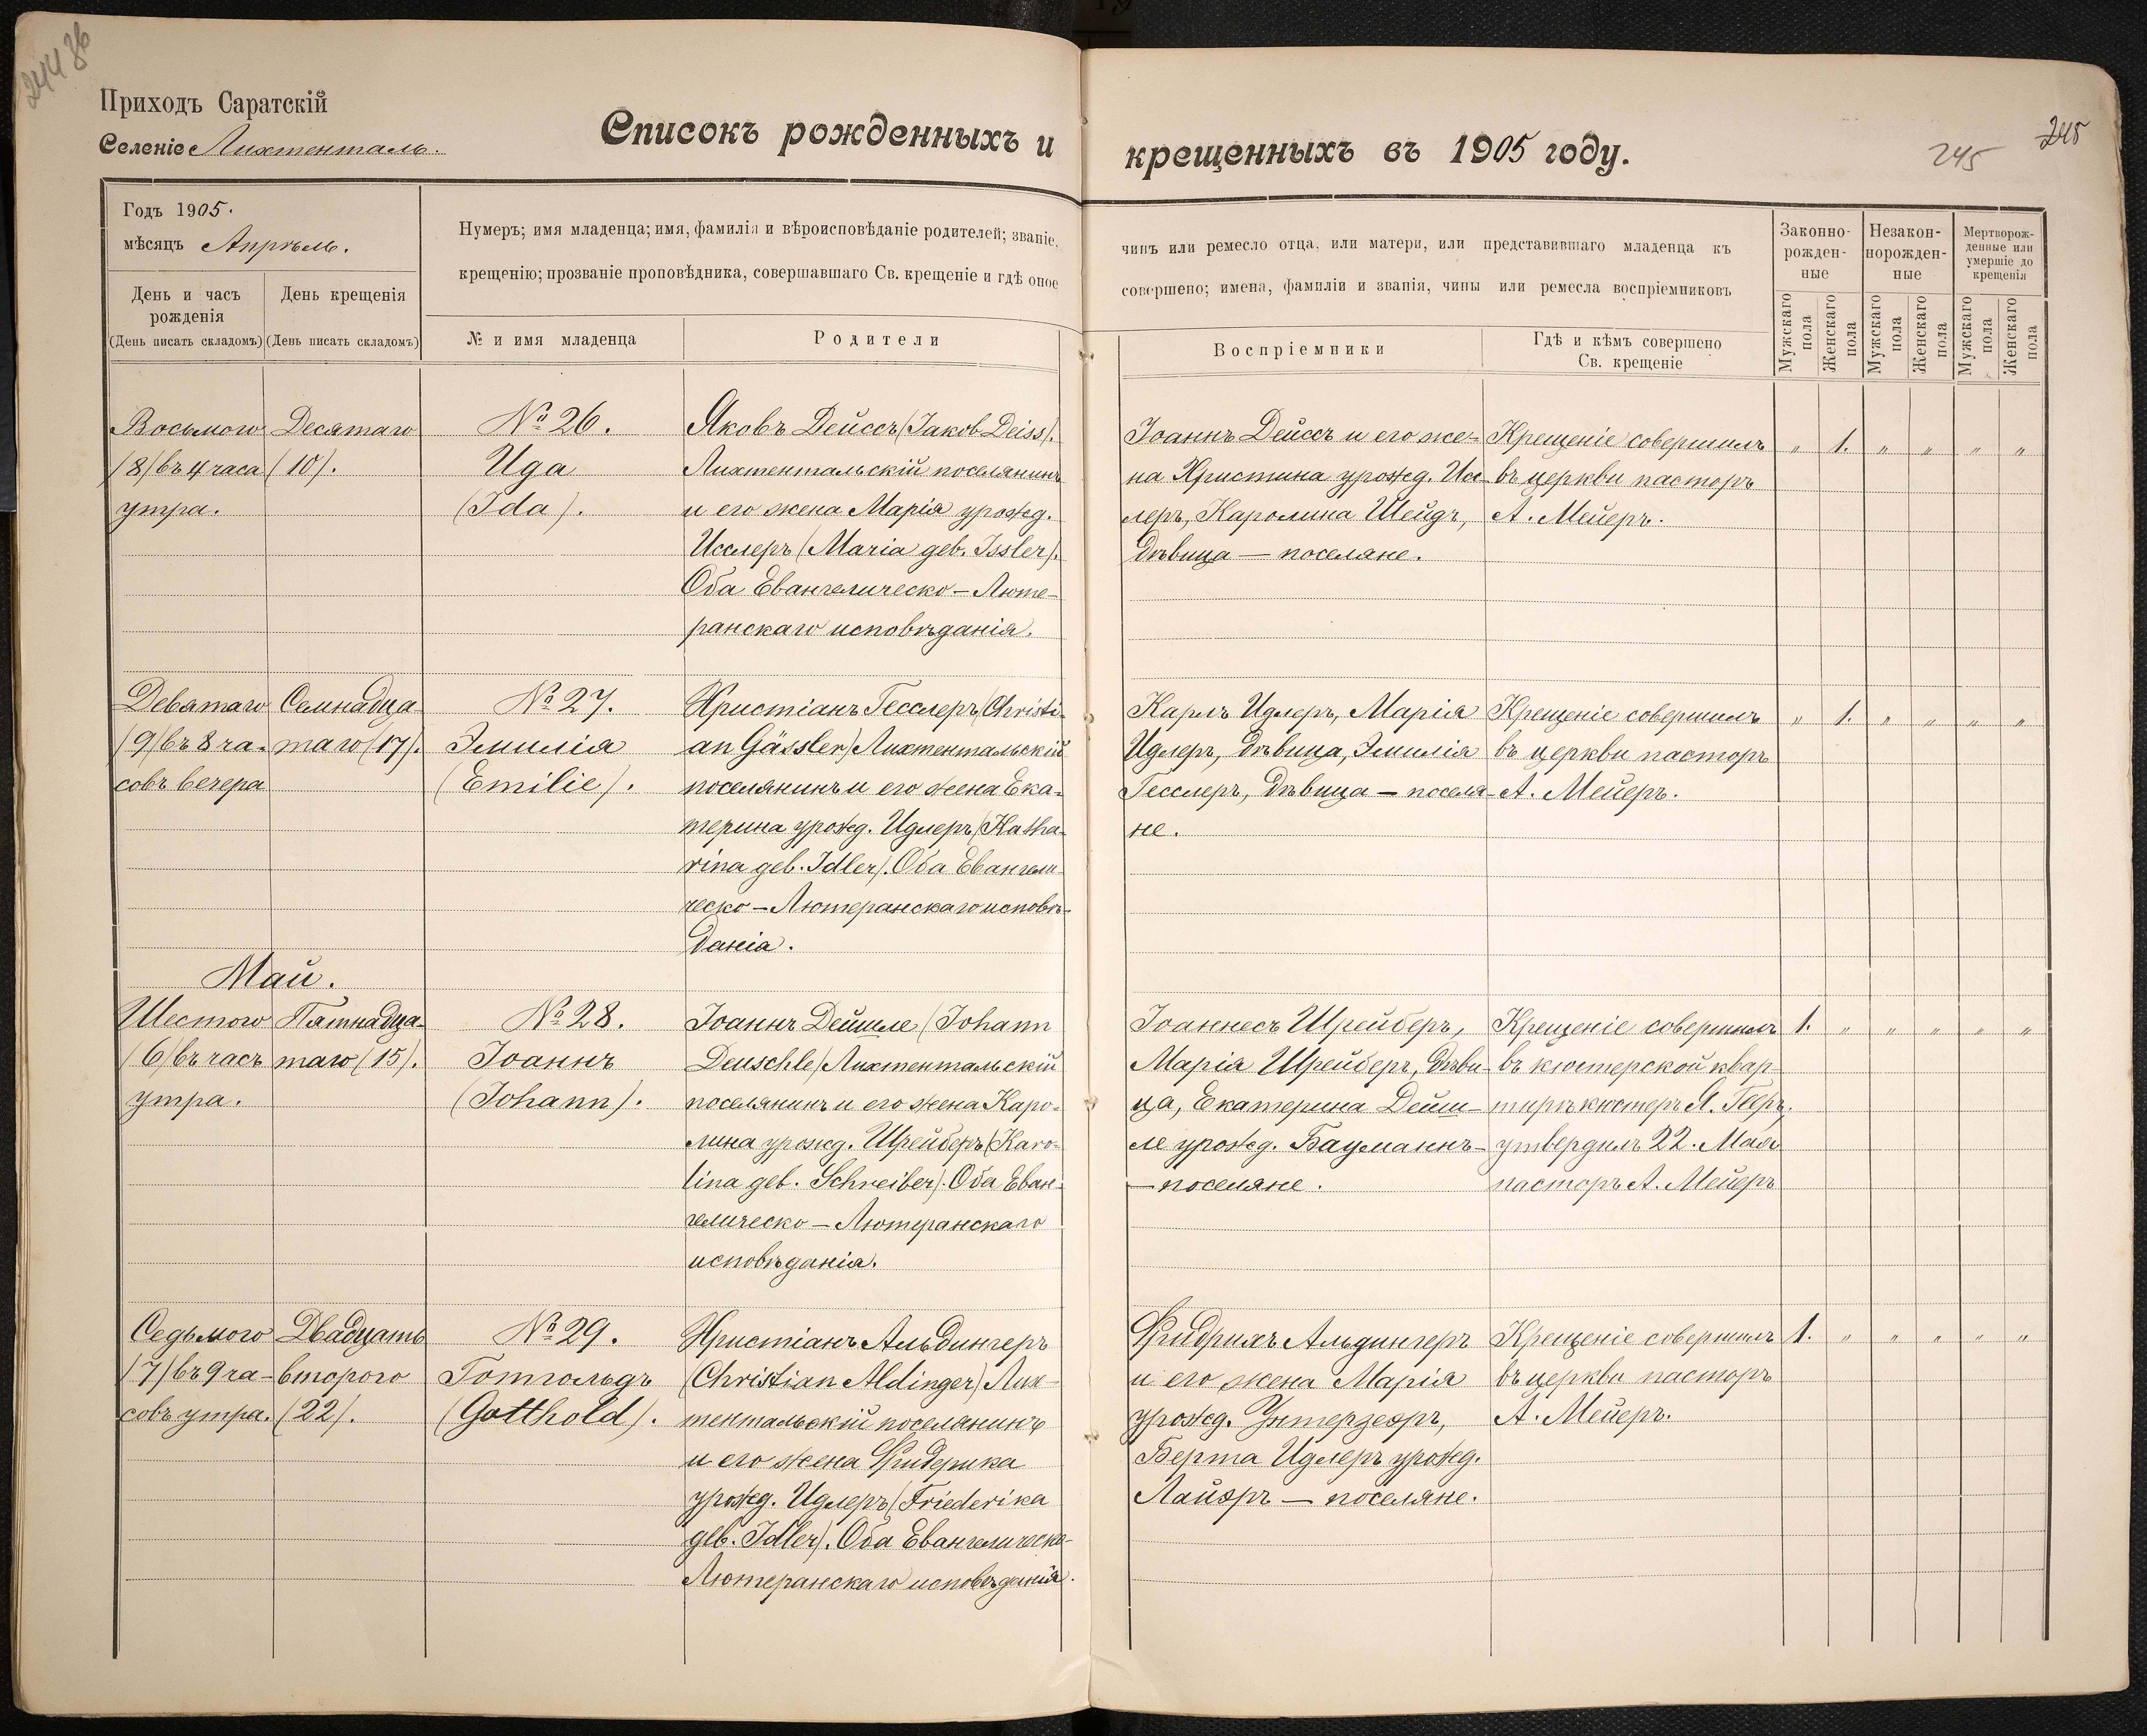 Приходъ Саратскій
Селеніе Лихтенталь.
Списокъ рожденныхъ и крещенныхъ въ 1905 году.
245
245
Годъ 1905.
мѣсяцъ Апрѣль.
День и часъ рожденія
(День писать складомъ)
День крещенія
(День писать складомъ)
Нумеръ; имя младенца; имя, фамилія и вѣроисповѣданіе родителей; званіе, чинъ или ремесло отца, или матери, или представившаго младенца къ
крещенію; прозваніе проповѣдника, совершавшаго Св. крещеніе и гдѣ оное совершено; имена, фамиліи и званія, чины или ремесла воспріемниковъ
№ и имя младенца
Родители
Воспріемники
Гдѣ и кѣмъ совершено
Св. крещеніе
Законно-
рожден-
ные
Незакон-
норожден-
ные
Мертворож-
денные или
умершіе до
крещенія
Мужскаго пола
Женскаго пола
Мужскаго пола
Женскаго пола
Мужскаго пола
Женскаго пола
Восьмого
(8) въ 4 часа
утра.
Десятаго
(10).
№ 26.
Ида
(Ida).
Яковъ Дейссъ (Jakob Deiss).
Лихтентальскій поселянинъ
и его жена Марія урожд.
Исслеръ (Maria geb. Issler).
Оба Евангелическо-Люте-
ранскаго исповѣданія.
Іоаннъ Дейссъ и его же-
на Христина урожд. Ис-
леръ, Каролина Шейдъ,
дѣвица — поселяне.
Крещеніе совершилъ
въ церкви пасторъ
А. Мейеръ.
„ 1. „ „ „ „
Девятаго
(9) въ 8 ча-
совъ вечера
Семнадца-
таго (17).
№ 27.
Эмилія
(Emilie).
Христіанъ Гесслеръ (Christi-
an Gässler) Лихтентальскій
поселянинъ и его жена Ека-
терина урожд. Идлеръ (Katha-
rina geb. Idler). Оба Евангели-
ческо-Лютеранскаго исповѣ-
данія.
Карлъ Идлеръ, Марія
Идлеръ, дѣвица, Эмилія
Гесслеръ, дѣвица — поселя-
не.
Крещеніе совершилъ
въ церкви пасторъ
А. Мейеръ.
„ 1. „ „ „ „
Май.
Шестого
(6) въ часъ
утра.
Пятнадца-
таго (15).
№ 28.
Іоаннъ
(Johann).
Іоаннъ Дейшле (Johann
Deuschle) Лихтентальскій
поселянинъ и его жена Каро-
лина урожд. Шрейберъ (Karo-
lina geb. Schreiber). Оба Еван-
гелическо-Лютеранскаго
исповѣданія.
Іоаннесъ Шрейберъ,
Марія Шрейберъ, дѣви-
ца, Екатерина Дейш-
ле урожд. Бауманнъ-
— поселяне.
Крещеніе совершилъ
въ кюстерской квар-
тирѣ кюстеръ
утвердилъ 22. Мая
пасторъ А. Мейеръ
1. „ „ „ „ „
Седьмого
(7) въ 9 ча-
совъ утра.
Двадцать
второго
(22).
№ 29.
Готгольдъ
(Gotthold).
Христіанъ Альдингеръ
(Christian Aldinger) Лих-
тентальскій поселянинъ
и его жена Фридерика
урожд. Идлеръ (Friederika
geb. Idler). Оба Евангелическо-
Лютеранскаго исповѣданія.
Фридрихъ Альдингеръ
и его жена Марія
урожд. Унтерзеэръ,
Берта Идлеръ урожд.
Лайэръ — поселяне.
Крещеніе совершилъ
въ церкви пасторъ
А. Мейеръ.
1. „ „ „ „ „